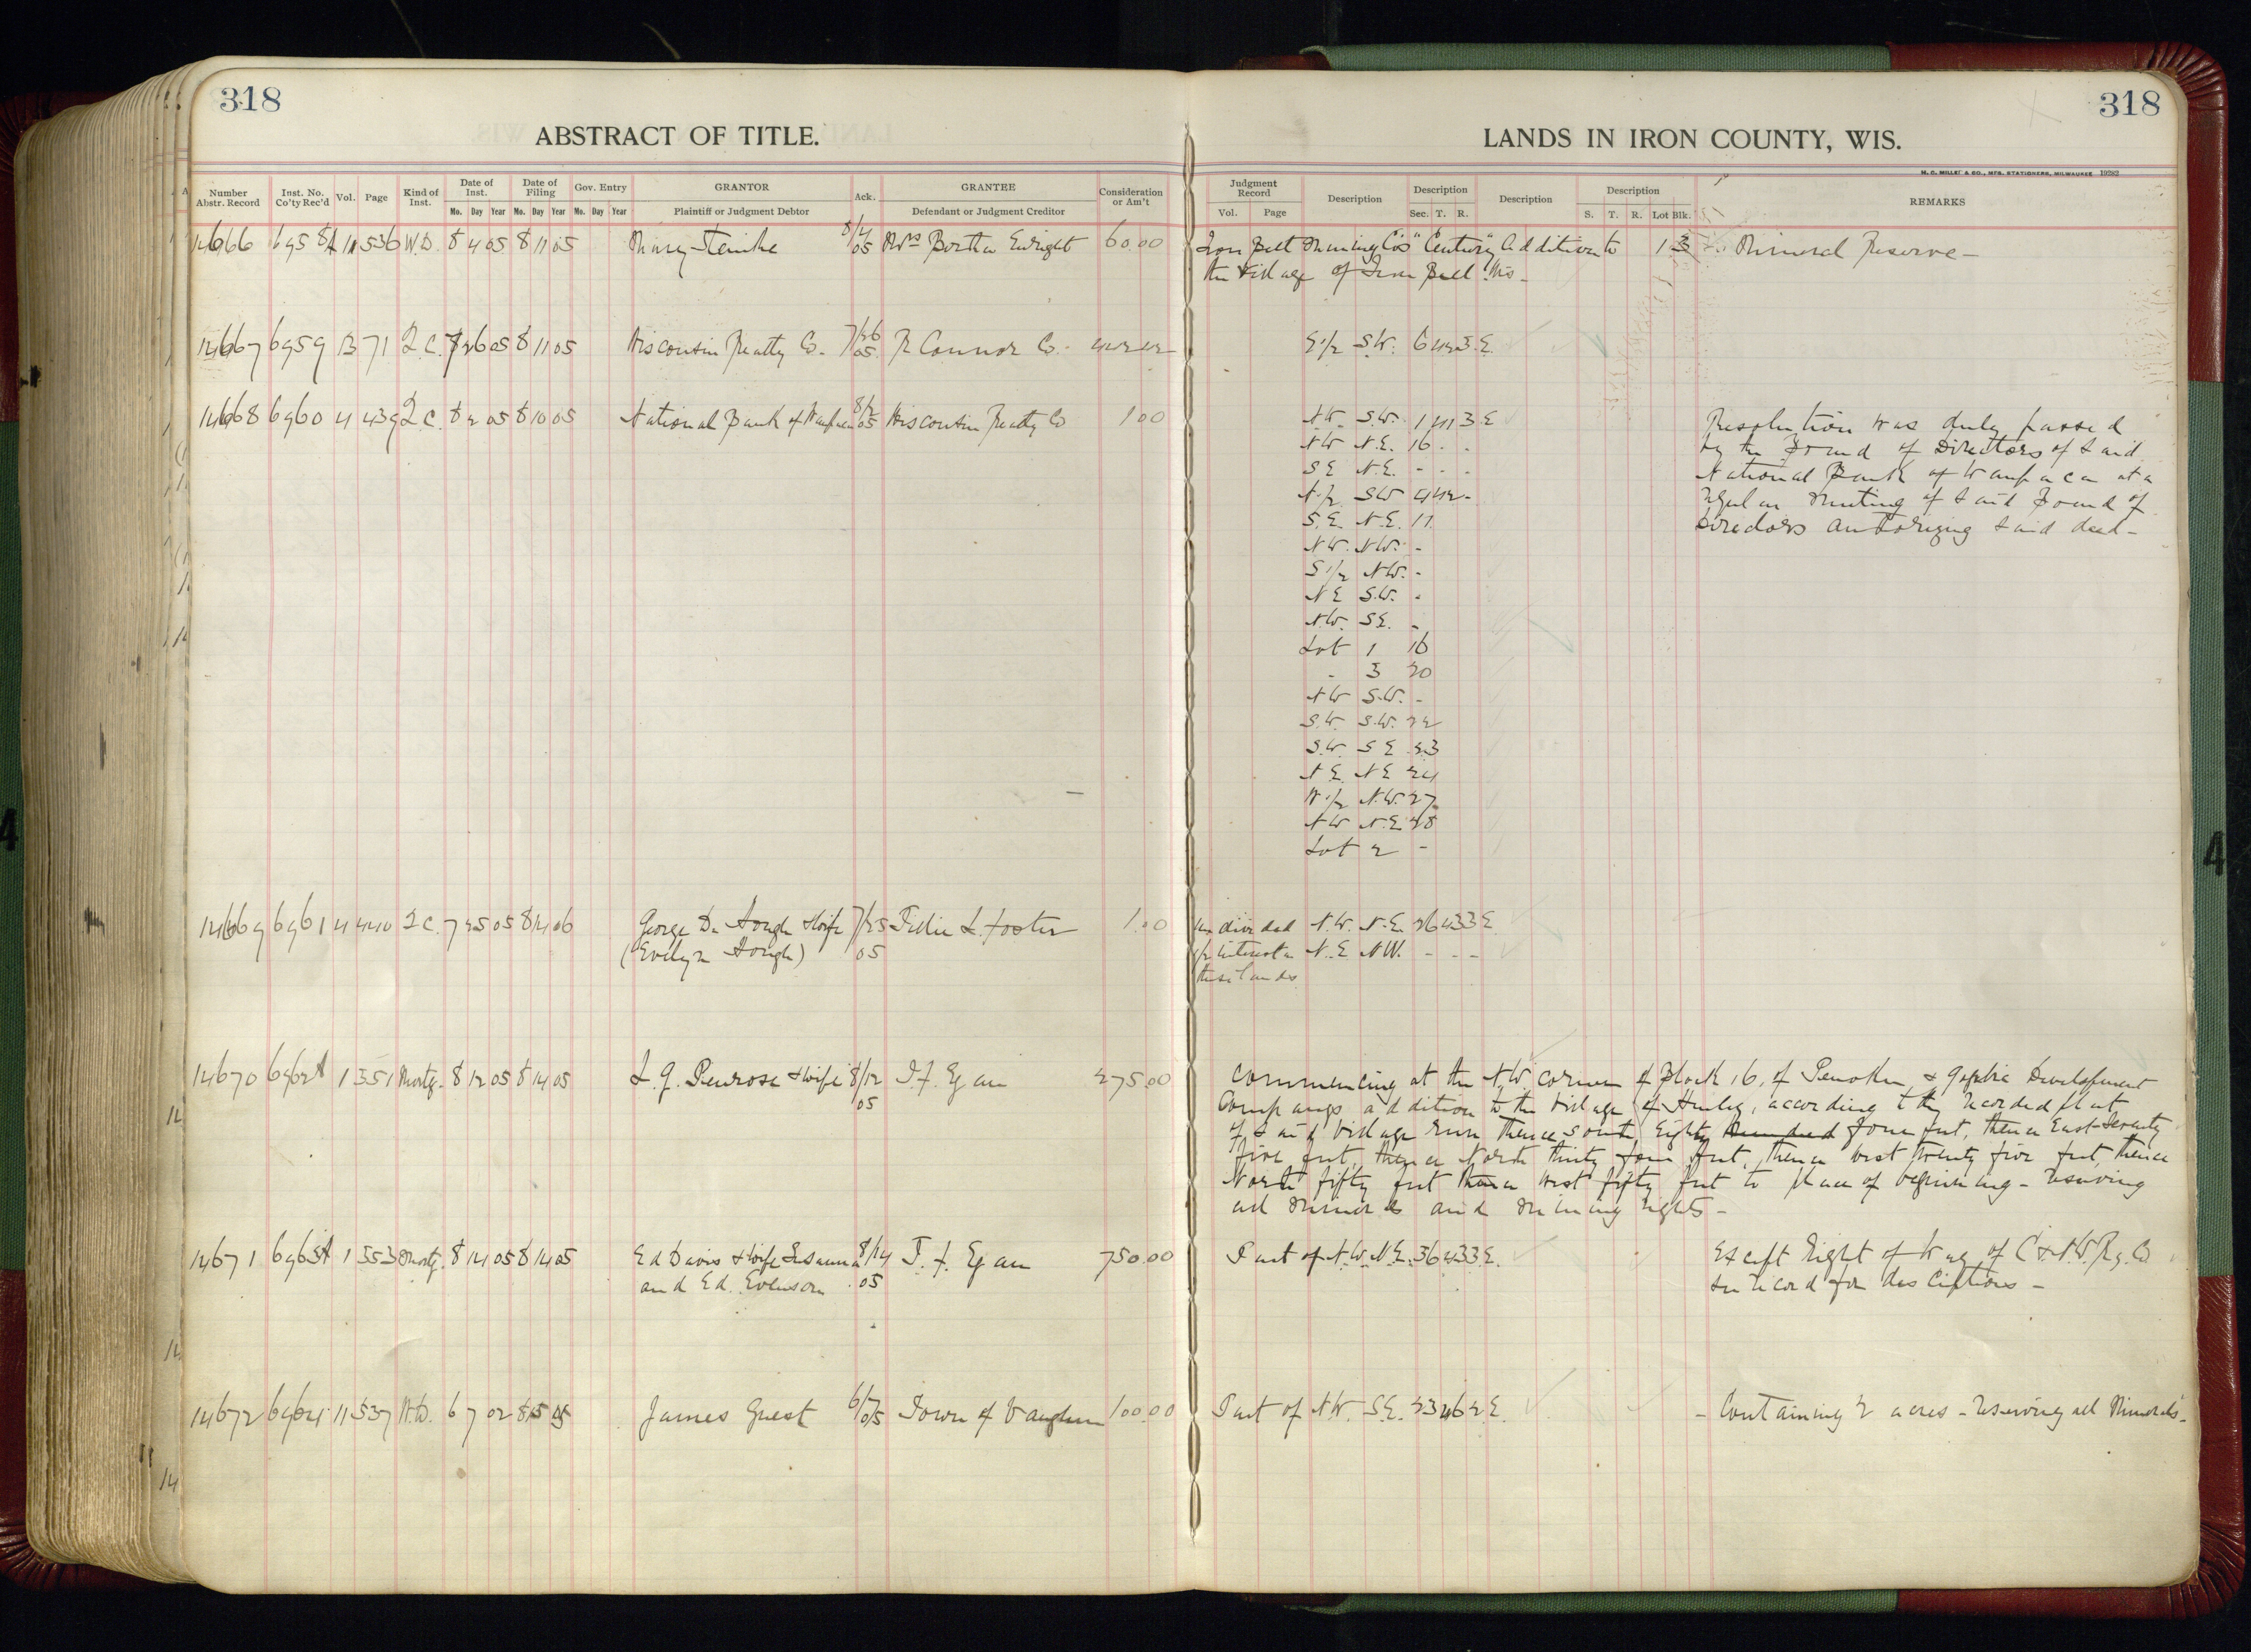 318
318
ABSTRACT OF TITLE.
LANDS IN IRON COUNTY, WIS.
M. C. MILLET & CO., MFG. STATIONERS, MILWAUKEE 19282
Number Abstr. Record Inst. No. Co'ty Rec'd Vol. Page Kind of Inst. Date of Inst. Mo. Day Year Date of Filing Mo. Day Year Gov. Entry Mo. Day Year GRANTOR Plaintiff or Judgment Debtor Ack. GRANTEE Defendant or Judgment Creditor Consideration or Am't
Judgment Record Vol. Page Description Description Sec. T. R. Description Description S. T. R. Lot Blk. REMARKS
14666 6958 A 11 536 W.D. 8 4 05 8 11 05 Mary Steinke 8/4 05 Mrs Bertha Enright 60.00 Iron Belt Mining Co's "Century" Addition to 1 3 Mineral Reserve -
the Village of Iron Belt Wis -
14667 6959 13 71 Q.C. 7 26 05 8 11 05 Wisconsin Realty Co. 7/26 05 R Connor Co. E 1/2 S.W. 6 42 3 E.
14668 6960 4 439 Q.C. 8 2 05 8 10 05 National Bank of Waupaca 8/2 05 Wisconsin Realty Co 1 00 N.W. S.W. 1 41 3 E Resolution was duly passed
NW N.E. 16 - - by the Board of Directors of said
SE N.E. - - - National Bank of Waupaca at a
N 1/2 SW 4 42 - regular meeting of said Board of
S.E. N.E. 11 Directors authorizing said deed -
N.W. N.W. -
S 1/2 N.W. -
N E S.W. -
N.W. S.E. -
Lot 1 16
- 3 20
N W S.W. -
S.W. S.W. 22
S.W. S E 23
N.E. N E 24
W 1/2 N.W. 27
N W N.E 28
Lot 2 -
14669 6961 4 440 Q C. 7 25 05 8 14 06 George D. Hough & Wife 7/25 05 Tillie L. Foster 1.00 undivided N.W. N.E. 26 43 3 E
(Evelyn Hough) 1/2 interest in N.E. NW. - - -
these lands
14670 6962 A 1 551 Mortg. 8 12 05 8 14 05 L. J. Penrose & wife 8/12 05 T. F. Egan 275.00 Commencing at the N.W. corner of Block 16, of Penokee & Gogebic Development
Companys addition to the Village of Hurley, according to the recorded plat
of said Village run thence South, Eighty hundred four feet, thence East Seventy
five feet, thence North thirty four feet, thence west twenty five feet, thence
North fifty feet thence west fifty feet to place of beginning - reserving
all minerals and mining rights -
14671 6963 A 1 553 Mortg. 8 14 05 8 14 05 Ed Davis & Wife 8/14 T. F. Egan 750.00 Part of N.W. N.E. 36 43 3 E. Except Right of Way of C & N.W. Ry. Co
and Ed. Evenson 05 See record for descriptions -
14672 6964 11 537 W.D. 6 7 02 8 15 05 James Guest 6/7 05 Town of Vaughn 100.00 Part of N.W. S.E. 23 46 2 E. - Containing 2 acres - reserving all Minerals -